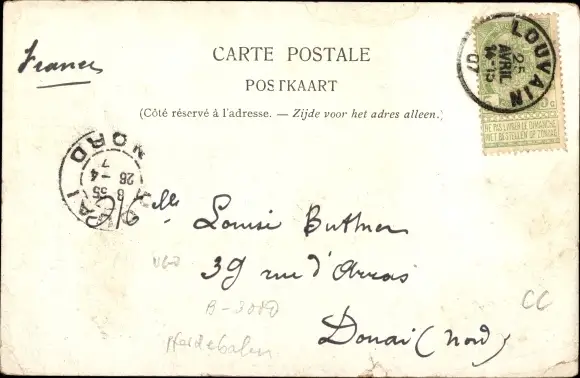 France
CARTE POSTALE
POSTKAART
(Côté réservé à l'adresse. — Zijde voor het adres alleen.)
LOUVAIN
25
AVRIL
14-15
07
NE PAS LIVRER LE DIMANCHE
NIET BESTELLEN OP ZONDAG
NORD
7
26 -4
8 35
Mlle Louise Buttner
39 rue d'Arras
Douai (Nord)
B-3000
CC